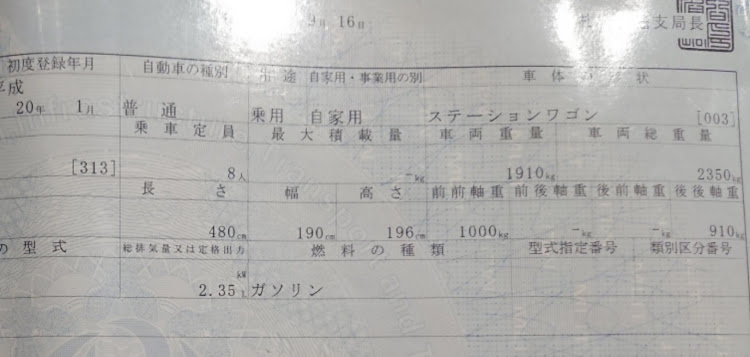 9月 16日 支局長
初度登録年月 自動車の種別 用途 自家用・事業用の別 車体の形状
平成
20年 1月 普通 乗用 自家用 ステーションワゴン [003]
乗車定員 最大積載量 車両重量 車両総重量
[313] 8人 -kg 1910kg 2350kg
長さ 幅 高さ 前前軸重 前後軸重 後前軸重 後後軸重
480cm 190cm 196cm 1000kg -kg -kg 910kg
の型式 総排気量又は定格出力 燃料の種類 型式指定番号 類別区分番号
kW
2.35L ガソリン